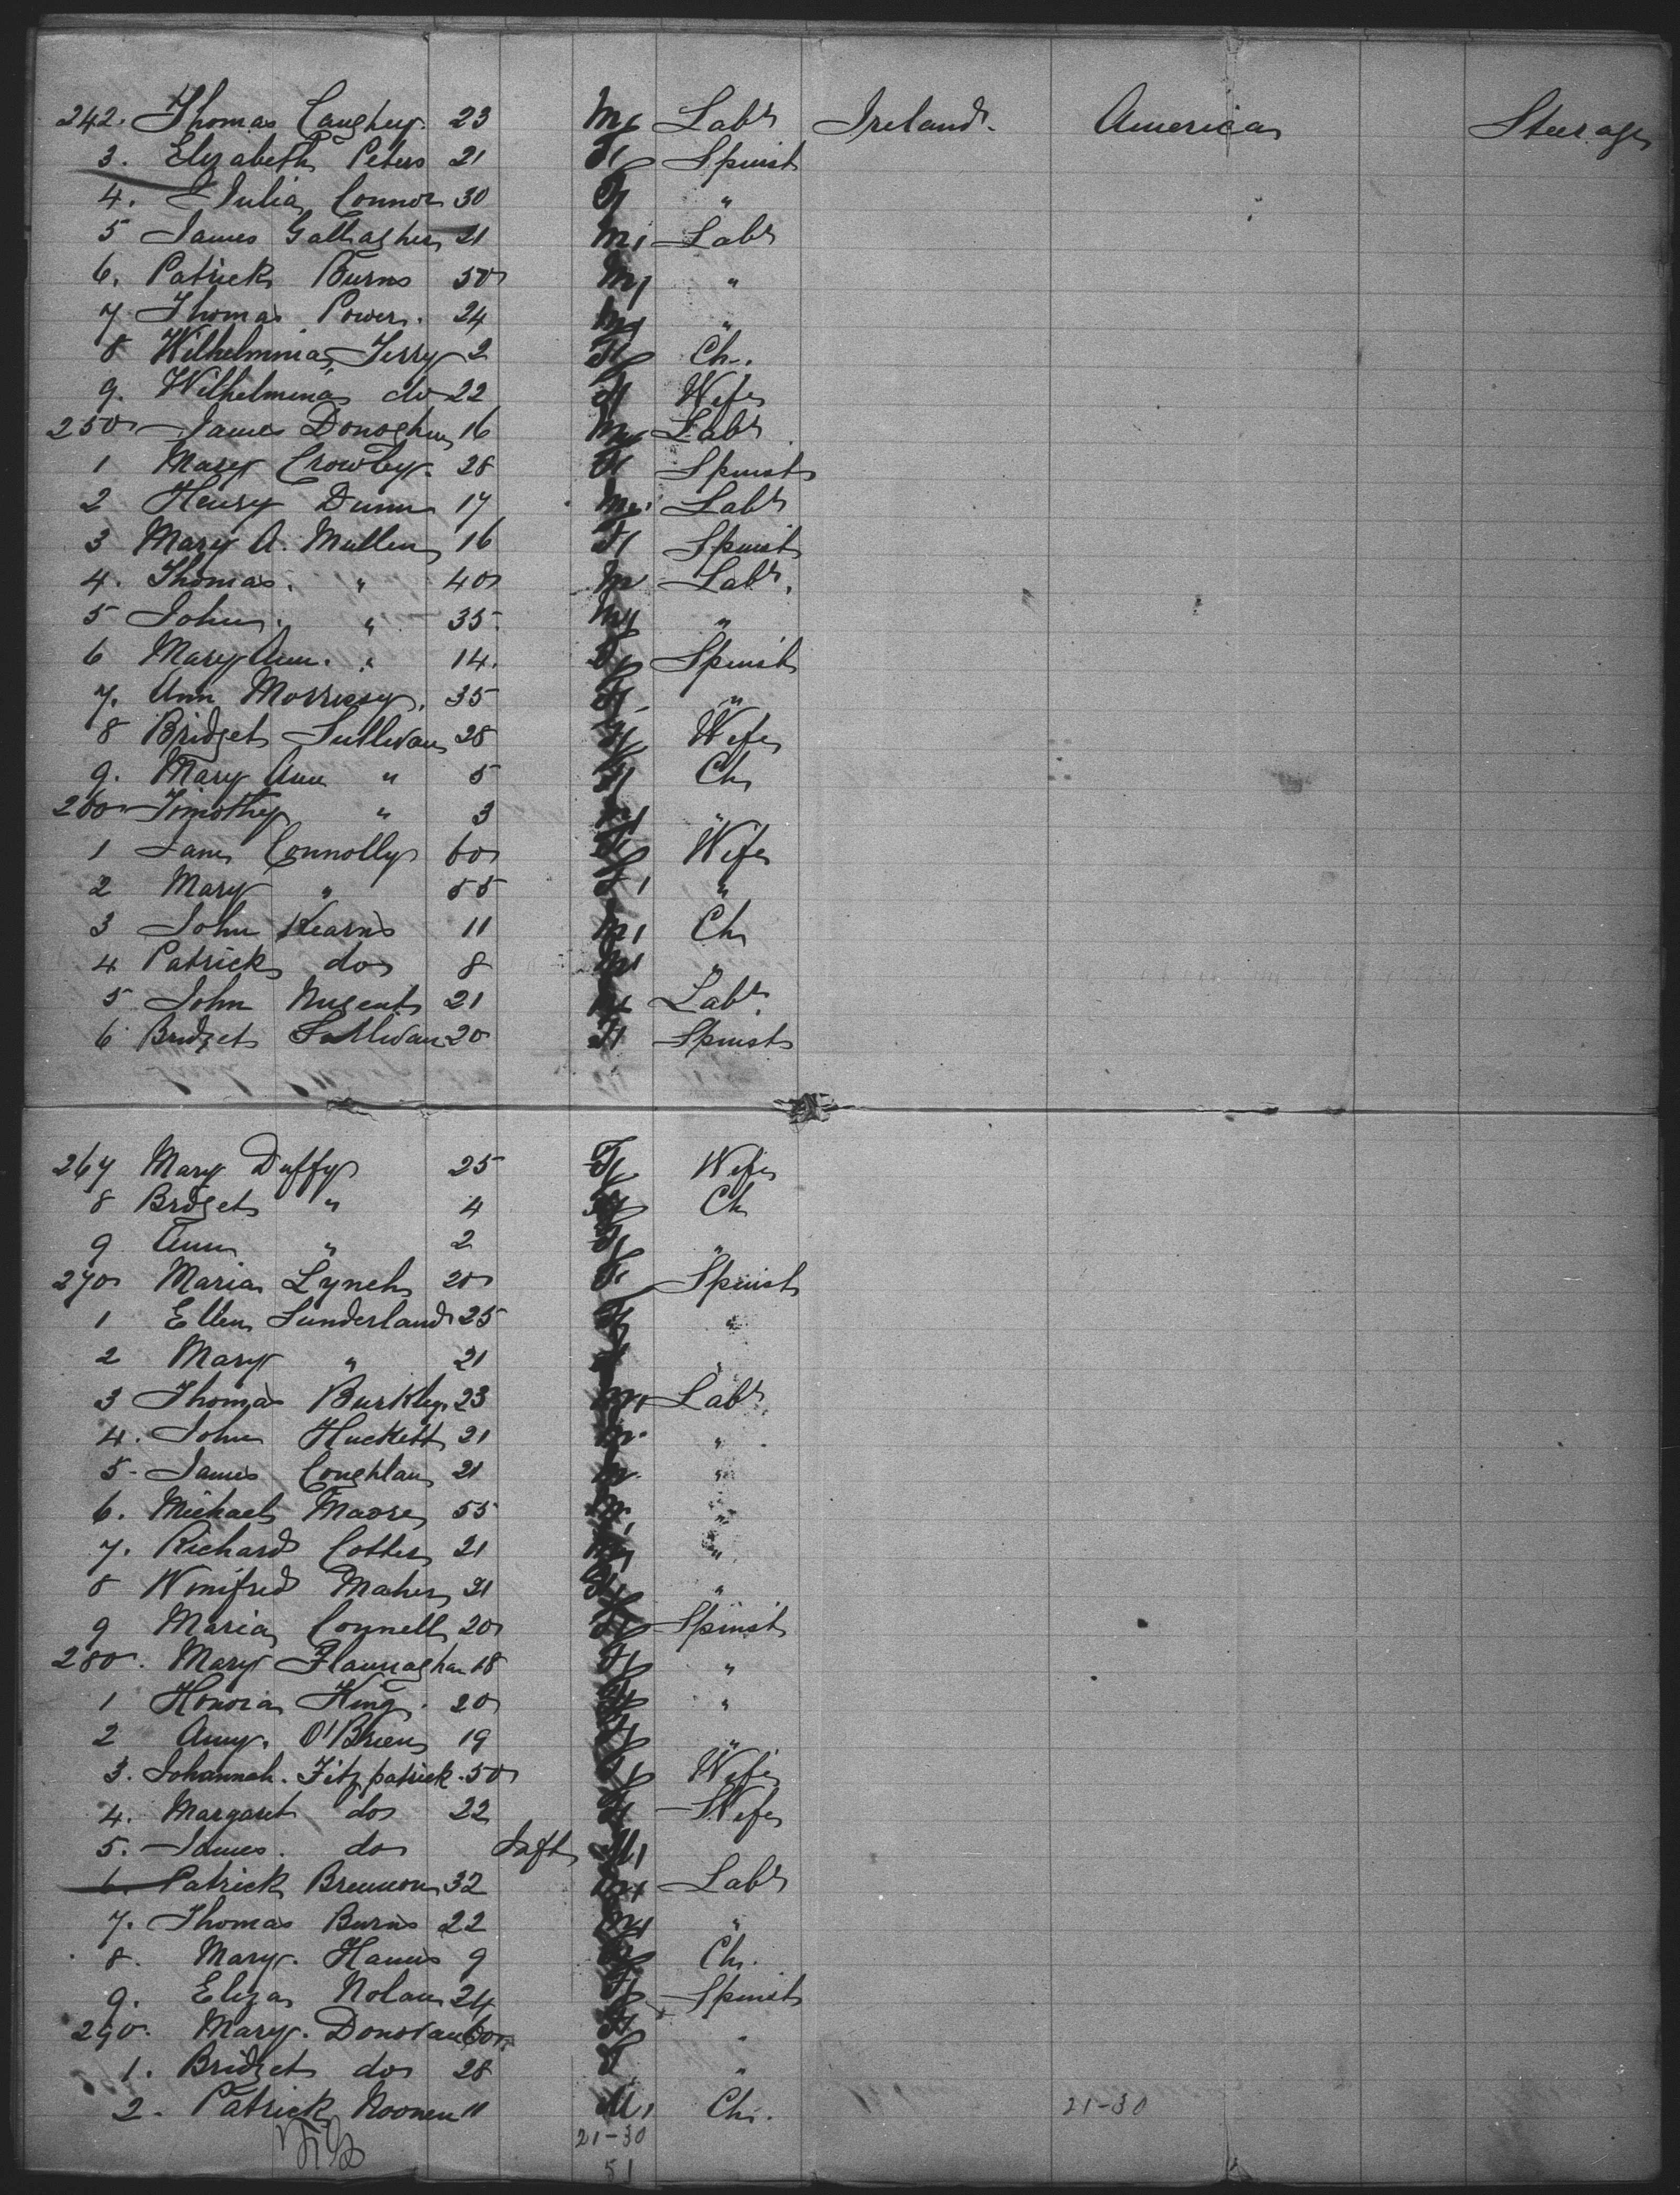 242. Thomas Caughey. 23 M Labr Ireland. America Steerage
3. Elizabeth Peters 21 F Spinst
4. Julia Connor 30 F "
5 James Gallagher 21 M Labr
6. Patrick Burns 50 M "
7. Thomas Power. 24 M "
8 Wilhelmina Terry 2 F Ch.
9. Wilhelmina do 22 F Wife
250 James Donoghue 16 M Labr
1 Mary Crowley. 28 F Spinst
2 Henry Dunn 17 M Labr
3 Mary A. Mullen 16 F Spinst
4. Thomas. " 40 M Labr.
5 John. " 35. M "
6 Mary Ann. " 14. F Spinst
7. Ann Morrissy. 35 F "
8 Bridget Sullivan 28 F Wife
9. Mary Ann " 5 F Ch
260 Timothy " 3 M "
1 Jane Connolly 60 F Wife
2 Mary " 55 F "
3 John Kearns 11 M Ch
4 Patrick do 8 M "
5 John Nugent 21 M Labr.
6 Bridget Sullivan 20 F Spinst
267 Mary Duffy 25 F Wife
8 Bridget " 4 F Ch
9 Ann " 2 F "
270 Maria Lynch 20 F Spinst
1 Ellen Sunderland 25 F "
2 Mary " 21 F "
3 Thomas Burkley 23 M Labr.
4. John Huckett 21 M "
5- James Coughlan 21 M "
6. Michael Moore 55 M "
7. Richard Cotter 21 M "
8 Winifred Maher 21 F "
9 Maria Connell 20 F Spinst
280. Mary Flannaghan 18 F "
1 Honora King. 20 F "
2 Amy. O'Brien 19 F "
3. Johannah. Fitzpatrick. 50 F Wife
4. Margaret do 22 F Wife
5. James. do Inft M
6. Patrick Brennon 32 M Labr
7. Thomas Burns 22 M "
8. Mary. Hanns 9 F Ch.
9. Eliza Nolan 24 F Spinst
290. Mary. Donovan 60 F "
1. Bridget do 28 F "
2. Patrick Noonen 11 M Ch. 21-30
21-30
51